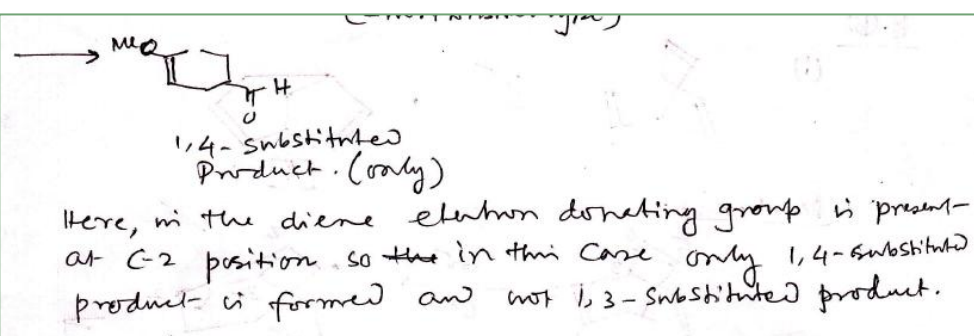 MeO
H
O
1,4-substituted
Product. (only)
Here, in the diene eletron donating group is present-
at C-2 position. so the in this case only 1,4-substituted
product is formed and not 1,3-substituted product.